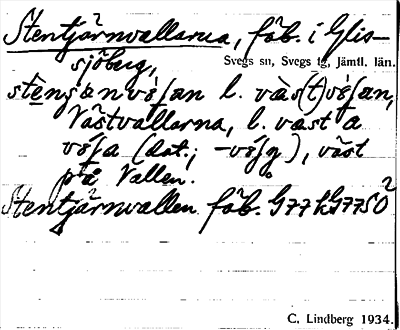 Stentjärnvallarna, fäb. i Glis-
sjöberg,
Svegs sn, Svegs tg, Jämtl. län.
l. väs(t)
Västvallarna, l. väst a
(dat.; ), väst
på Vallen.
Stentjärnvallen fäb. G77kG77SO2
C. Lindberg 1934.